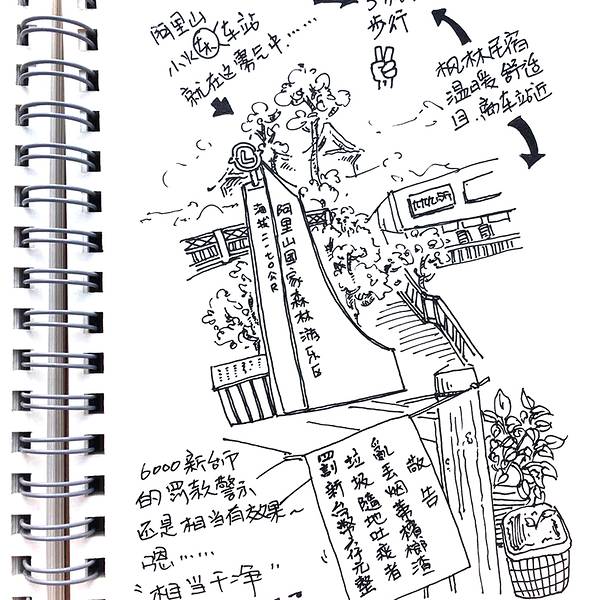 阿里山
小火车站
就在这雾气中……
步行
枫林民宿
温暖舒适
且离车站近
阿里山國家森林游乐区
海拔二二七〇公尺
敬告
亂丟烟蒂檳榔渣
垃圾隨地吐痰者
罰新台幣六仟元整
6000新台币
的罚款警示
还是相当有效果~
嗯……
"相当干净"